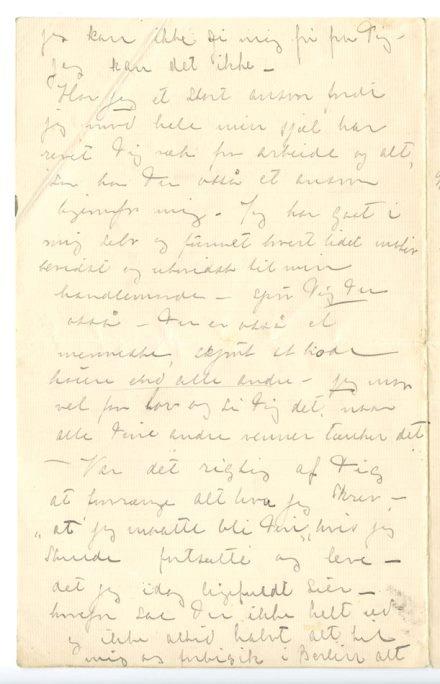 jeg kan ikke gi mig fri fra Dig –
jeg kan det ikke –
Har jeg et stort ansvar fordi
jeg mod hele min sjæl har
revet Dig væk fra arbeide og alt,
saa har Du også et ansvar
igjenfor mig. – Jeg har gaat i
mig selv og funnet hvert lidet motiv
bevidst og ubevidst til min
handlemaade – spør Dig Du
også – Du er også et
menneske, skjønt et hode
høiere end alle andre – jeg maa
vel faa lov og si Dig det, naar
alle Dine andre venner tænker det
– Var det rigtig af Dig
at alt hva jeg skrev –
"at jeg maatte bli Din", hvis jeg
skulde fortsætte og leve –
det jeg idag ligefuldt sier –
hvorfor saa Du ikke helt
og ikke altid halvt alt hos
mig og i Berlin alt